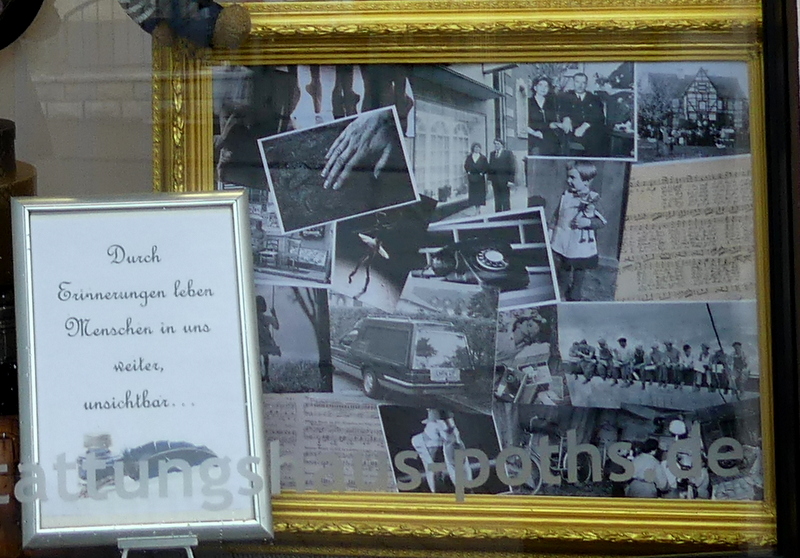 Durch
Erinnerungen leben
Menschen in uns
weiter,
unsichtbar...
tattungshaus-poths.de